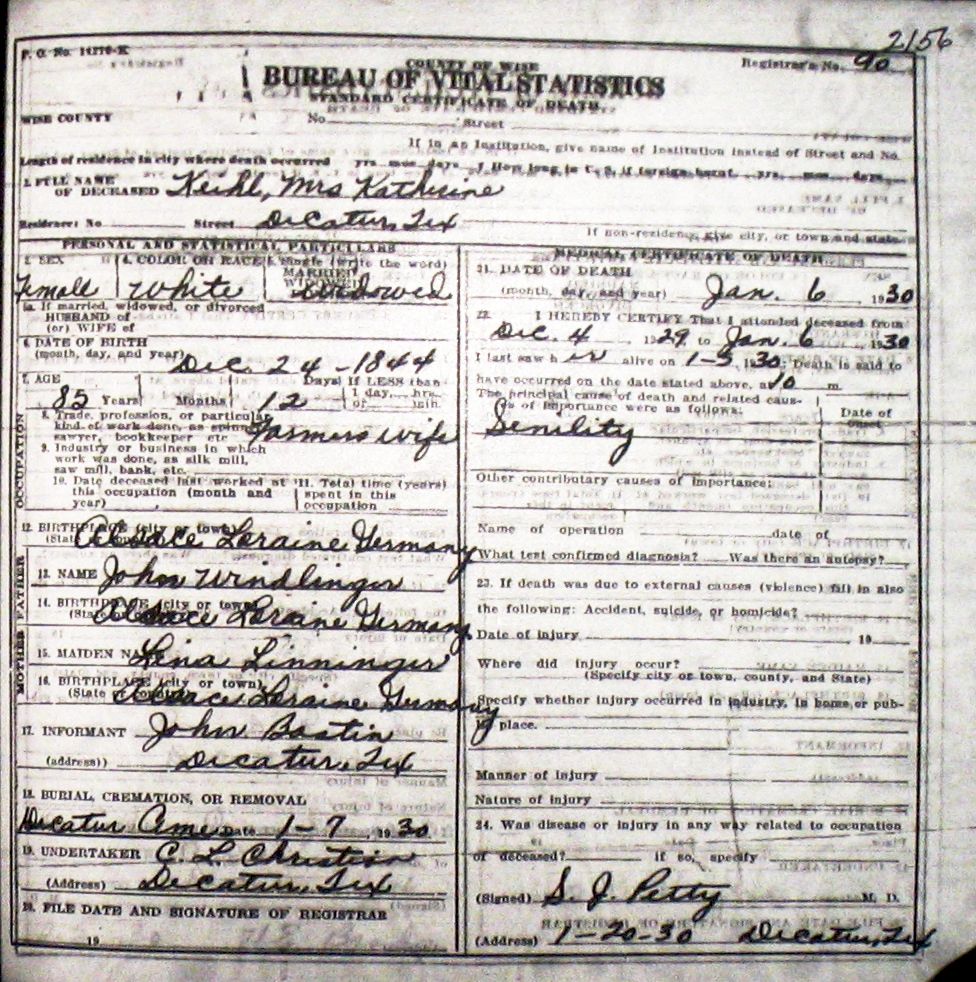 2156
F. O. No. 11770-K
COUNTY OF WISE
Registrar's No. 90
BUREAU OF VITAL STATISTICS
STANDARD CERTIFICATE OF DEATH
WISE COUNTY
No. Street
If in an Institution, give name of Institution instead of Street and No.
Length of residence in city where death occurred yrs mos days How long in U. S. if foreign born? yrs. mos. days
2. FULL NAME OF DECEASED Keihl, Mrs Katherine
Residence: No Street Decatur, Tex
If non-residence give city, or town and state
PERSONAL AND STATISTICAL PARTICULARS
3. SEX Female
4. COLOR OR RACE White
5. Single (write the word) MARRIED WIDOWED Widowed
5a. If married, widowed, or divorced
HUSBAND of
(or) WIFE of
6. DATE OF BIRTH
(month, day, and year) Dec. 24-1844
7. AGE 85 Years Months 12 Days If LESS than 1 day, hrs. or min.
8. Trade, profession, or particular
kind of work done, as spinner
sawyer, bookkeeper etc Farmers wife
9. Industry or business in which
work was done, as silk mill,
saw mill, bank, etc.
10. Date deceased last worked at this occupation (month and year)
11. Total time (years) spent in this occupation
OCCUPATION
12. BIRTHPLACE (city or town)
(State Alsace Loraine Germany
FATHER
13. NAME John Windlinger
14. BIRTHPLACE (city or town)
(State Alsace Loraine Germany
MOTHER
15. MAIDEN NAME Lena Linninger
16. BIRTHPLACE (city or town)
(State or Country) Alsace Loraine Germany
17. INFORMANT John Bastin
(address)) Decatur, Tex
18. BURIAL, CREMATION, OR REMOVAL
Decatur Date 1-7, 1930
19. UNDERTAKER C. L. Christian
(Address) Decatur, Tex
20. FILE DATE AND SIGNATURE OF REGISTRAR
19
MEDICAL CERTIFICATE OF DEATH
21. DATE OF DEATH
(month, day, and year) Jan. 6, 1930
22. I HEREBY CERTIFY That I attended deceased from
Dec. 4 1929 to Jan. 6, 1930
I last saw her alive on 1-5 1930: Death is said to
have occurred on the date stated above, at 10 m
The principal cause of death and related causes of importance were as follows:
Date of Onset
Senility
Other contributary causes of importance:
Name of operation date of
What test confirmed diagnosis? Was there an autopsy?
23. If death was due to external causes (violence) fill in also
the following: Accident, suicide, or homicide?
Date of injury 19
Where did injury occur?
(Specify city or town, county, and State)
Specify whether injury occurred in industry, in home, or pub-
lic place.
Manner of injury
Nature of injury
24. Was disease or injury in any way related to occupation
of deceased? if so, specify
(Signed) S. J. Petty M. D.
(Address) 1-20-30 Decatur, Tex